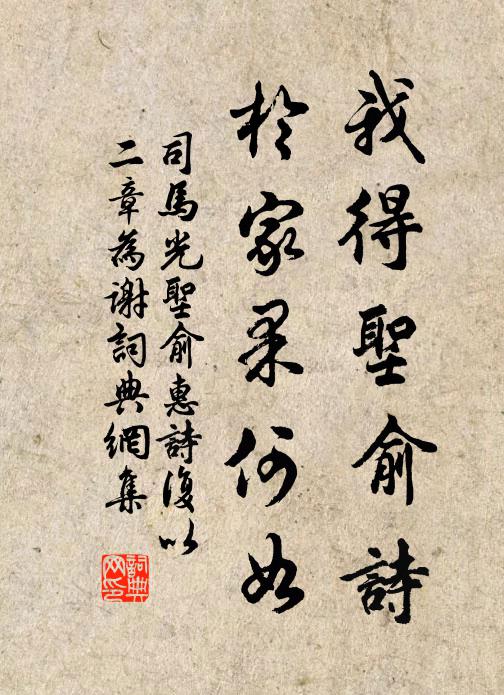 我得聖俞詩
於家果何如
司馬光聖俞惠詩復以
二章為謝詞典網集
詞典网印